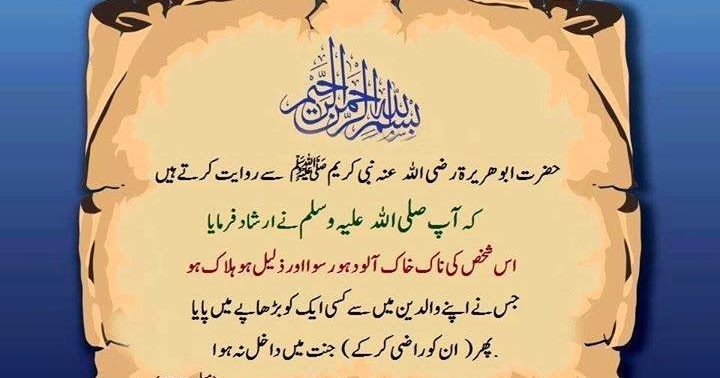 بسم الله الرحمن الرحيم
حضرت ابو ھریرۃ رضی اللہ عنہ نبی کریم ﷺ سے روایت کرتے ہیں
کہ آپ صلی اللہ علیہ وسلم نے ارشاد فرمایا
اس شخص کی ناک خاک آلود ہو رسوا اور ذلیل ہو ہلاک ہو
جس نے اپنے والدین میں سے کسی ایک کو بڑھاپے میں پایا
پھر ( ان کو راضی کر کے ) جنت میں داخل نہ ہوا .